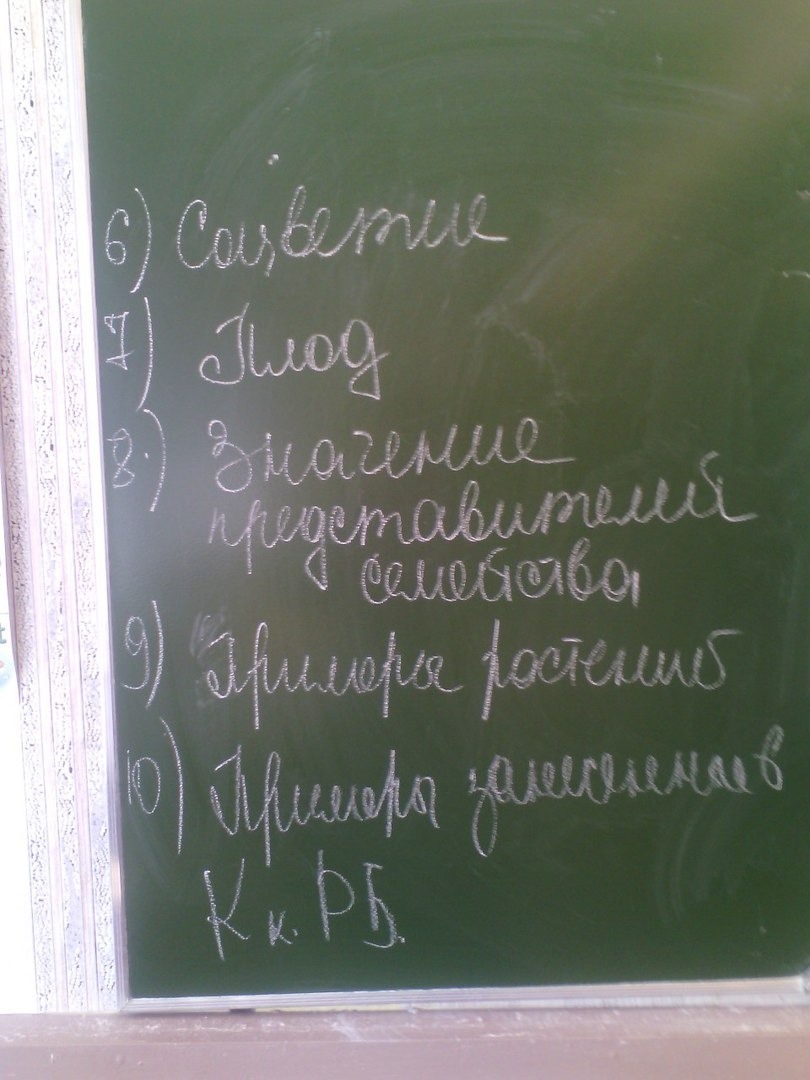 6) Соцветие
7) Плод
8.) Значение
представителей
семейства
9) Примеры растений
10) Примеры занесенные в
Кк. РБ.